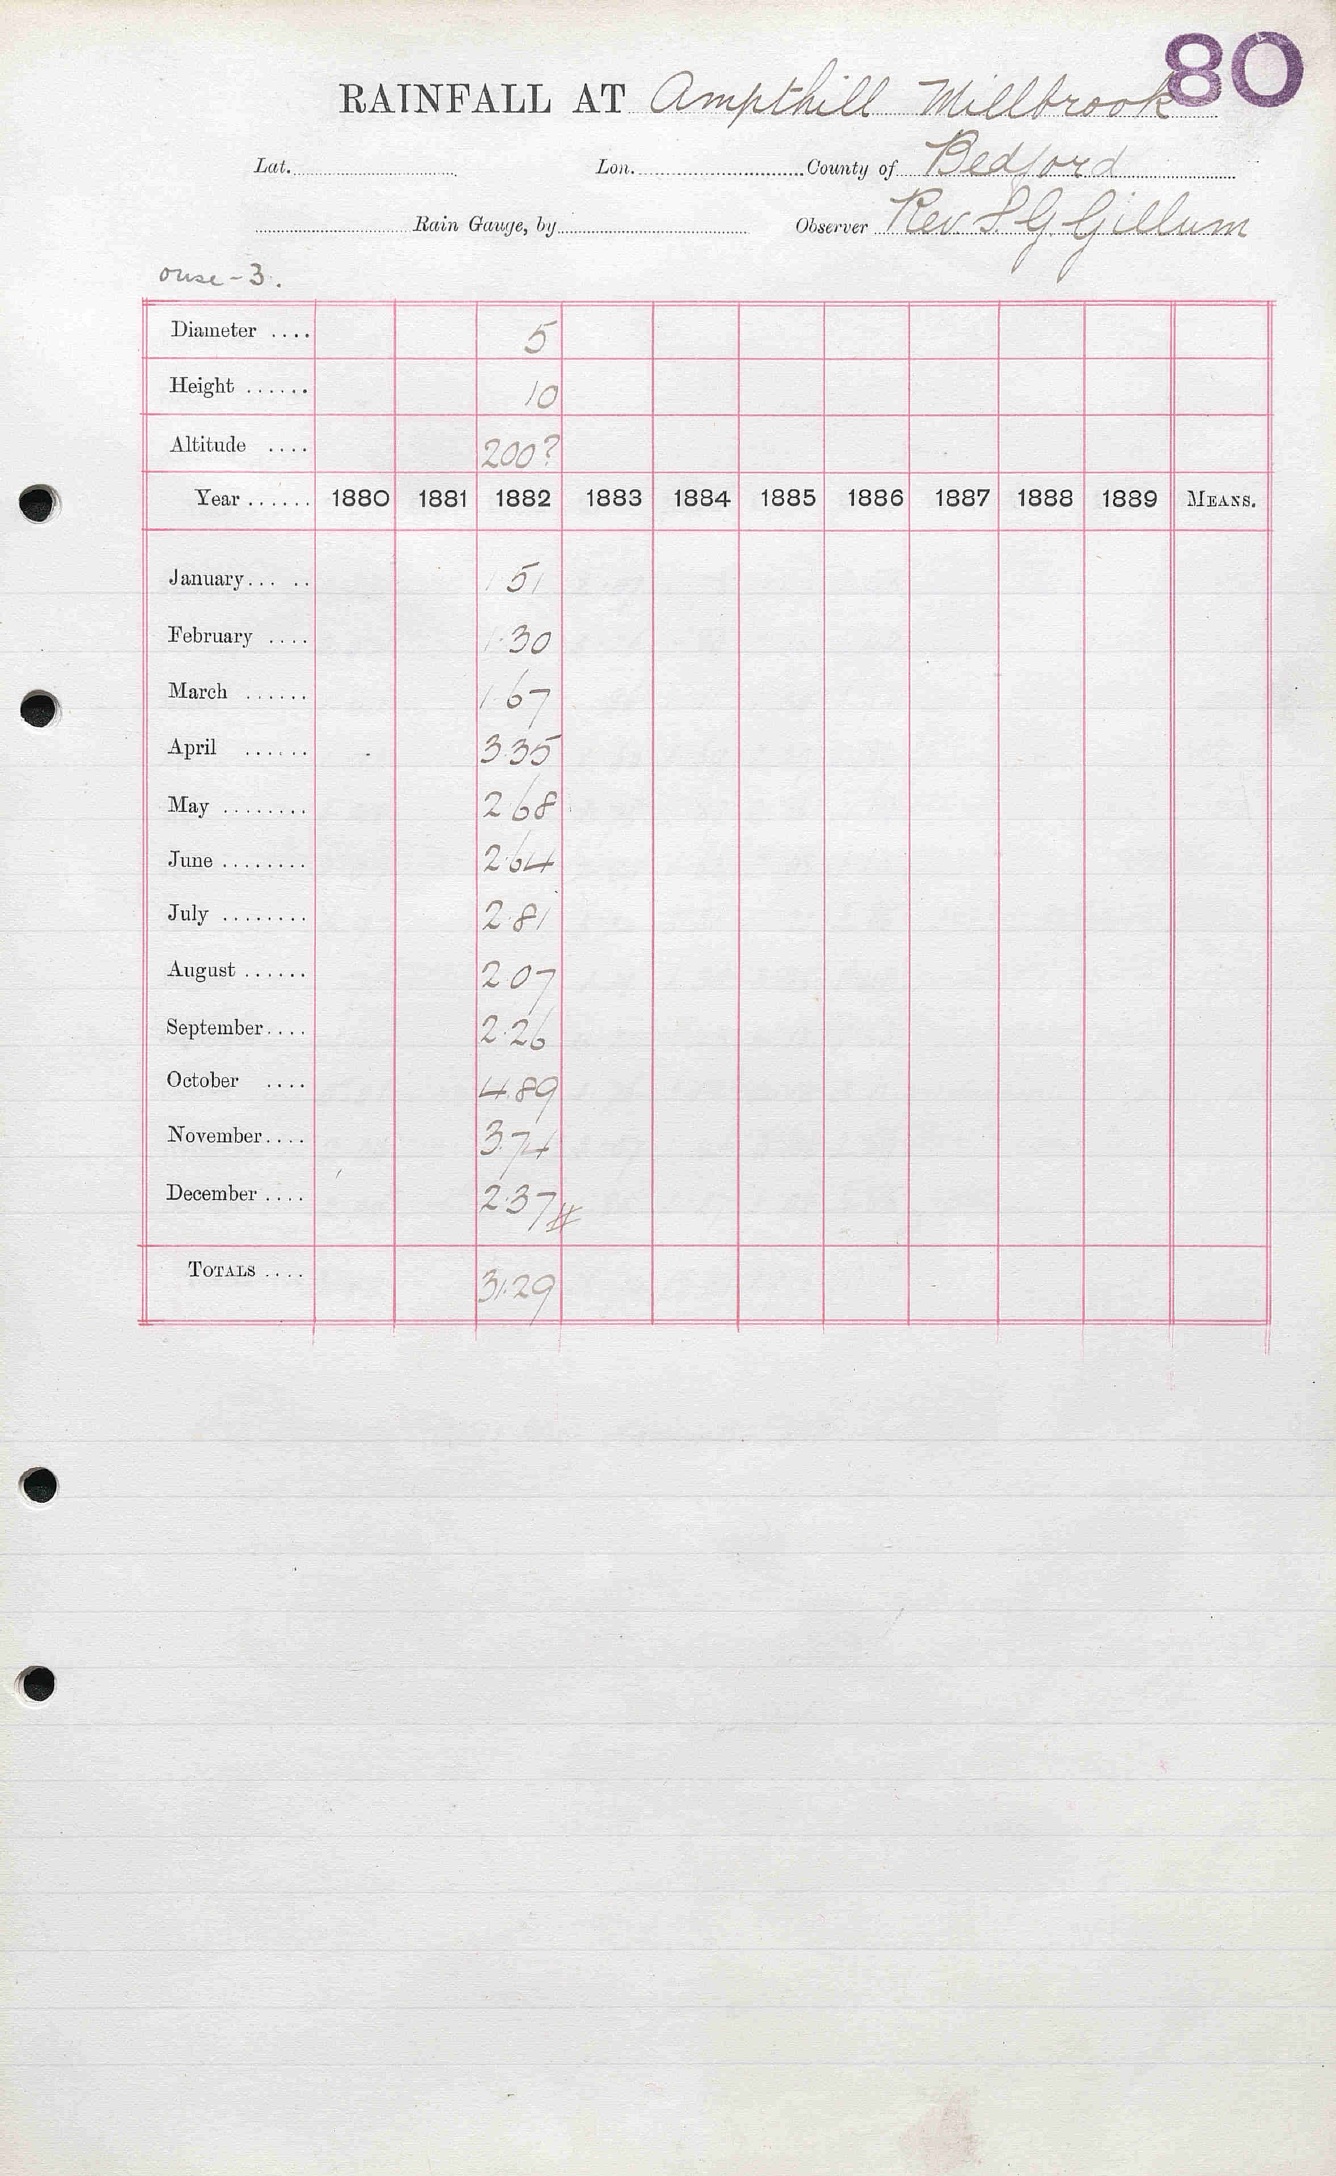 80
RAINFALL AT Ampthill Millbrook
Lat. Lon. County of Bedford
Rain Gauge, by Observer Rev S. G. Gillum
ouse-3.
Diameter .... 5
Height ...... 10
Altitude .... 200?
Year ...... 1880 1881 1882 1883 1884 1885 1886 1887 1888 1889 MEANS.
January... .. 1 51
February .... 1.30
March ...... 1 67
April ...... 3.35
May ........ 2 68
June ........ 2.64
July ........ 2.81
August ...... 2 07
September.... 2.26
October .... 4.89
November.... 3.74
December .... 2.37 #
TOTALS .... 31.29